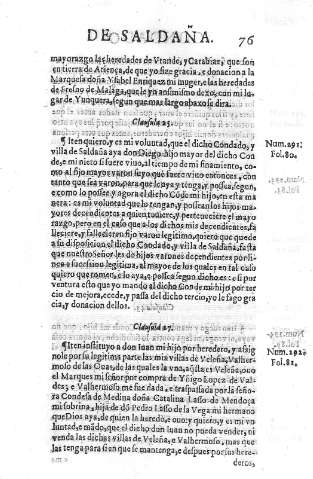 DE SALDAÑA. 76
mayorazgo las heredades de Vtande, y Carabias, que son
en tierra de Atiença, de que yo fize gracia, e donacion a la
Marquesa doña Ysabel Enriquez mi muger, e las heredades
de Fresno de Malaga, que le yo ansimismo dexo, con mi lu
gar de Yunquera, segun que mas largo abaxo se dira.
Clausula 25.
¶ Iten quiero, es mi voluntad, que el dicho Condado, y
villa de Saldaña aya don Diego hijo mayor del dicho Con
de, e mi nieto si fuere vivo, al tiempo de mi finamiento, co-
mo al fijo mayor varon suyo que fuere vivo entonces, con
tanto que sea varon, para que lo aya y tenga, y possea, segun,
e como lo possee y agora el dicho Conde mi hijo, en esta ma
nera: es mi voluntad que lo tengan, y possean los hijos ma-
yores decendientes a quien tuuiere, y perteneciere el mayo
razgo, pero en el caso que a los dichos mis decendientes, fa
llesciere hijo varon legitimo, quiero que quede
a su disposicion el dicho Condado, y villa de Saldaña, fasta
que nuestro Señor les de hijos varones decendientes por li-
nea e sucession legitima, al mayor de los quales en tal caso
quiero que torne, e lo aya, e possea segun dicho es: e si por
ventura esto que yo mando al dicho Conde mi hijo por ter
cio de mejora, excede, y passa del dicho tercio, yo le fago gra
cia, y donacion dellos.
Clausula 27.
¶ Iten instituyo a don Iuan mi hijo por heredero, y assig
nole por su legitima parte las mis villas de Veleña, Valher-
moso de las Ouas, de las quales la vna, q̃ es Veleña, ouo
el Marques mi señor por compra de Yñigo Lopez de Val-
des; e Valhermoso me fue dada, e traspassada por la seño-
ra Condesa de Medina doña Catalina Lasso de Mendoça
mi sobrina, hija de dō Pedro Lasso de la Vega mi hermano
que Dios aya, de quien la heredò, e ouo; y quiero, y es mi vo
luntad, e mādo, que el dicho don Iuan no pueda vender, ni
venda las dichas villas de Veleña, e Valhermoso, mas que
las tenga para sien que se mantenga, e despues por sus here-
deros,
Num. 291.
Fol. 80.
Num. 292.
Fol. 82.